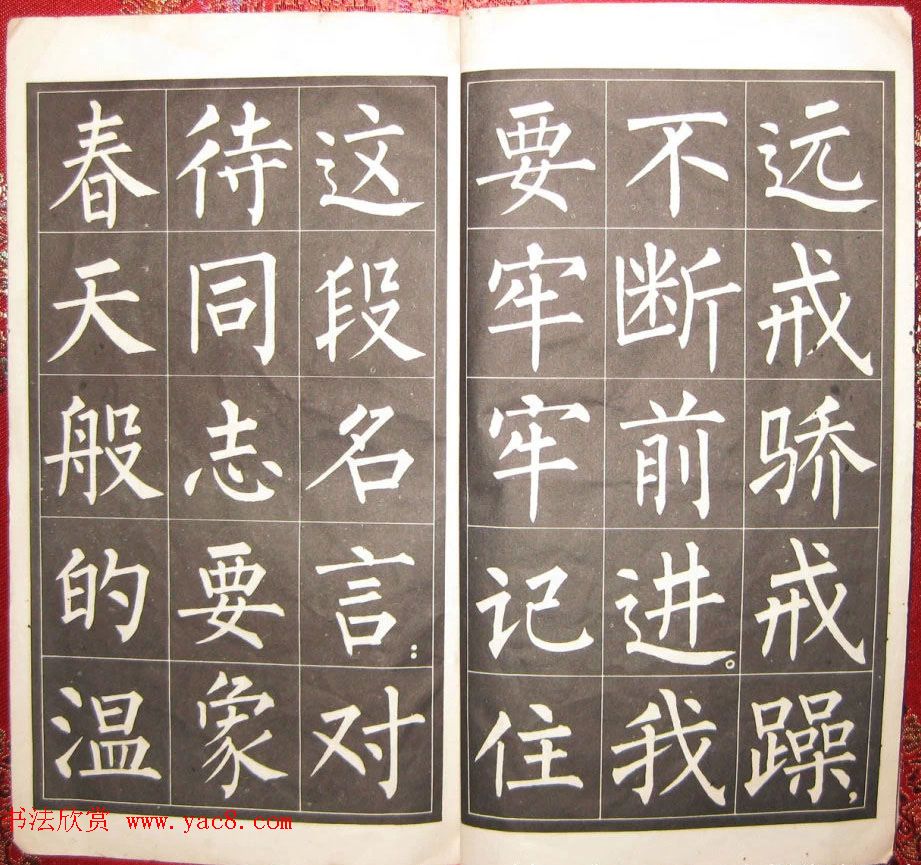 远戒骄戒躁，
不断前进。我
要牢牢记住
这段名言：对
待同志要象
春天般的温
书法欣赏 www.yac8.com